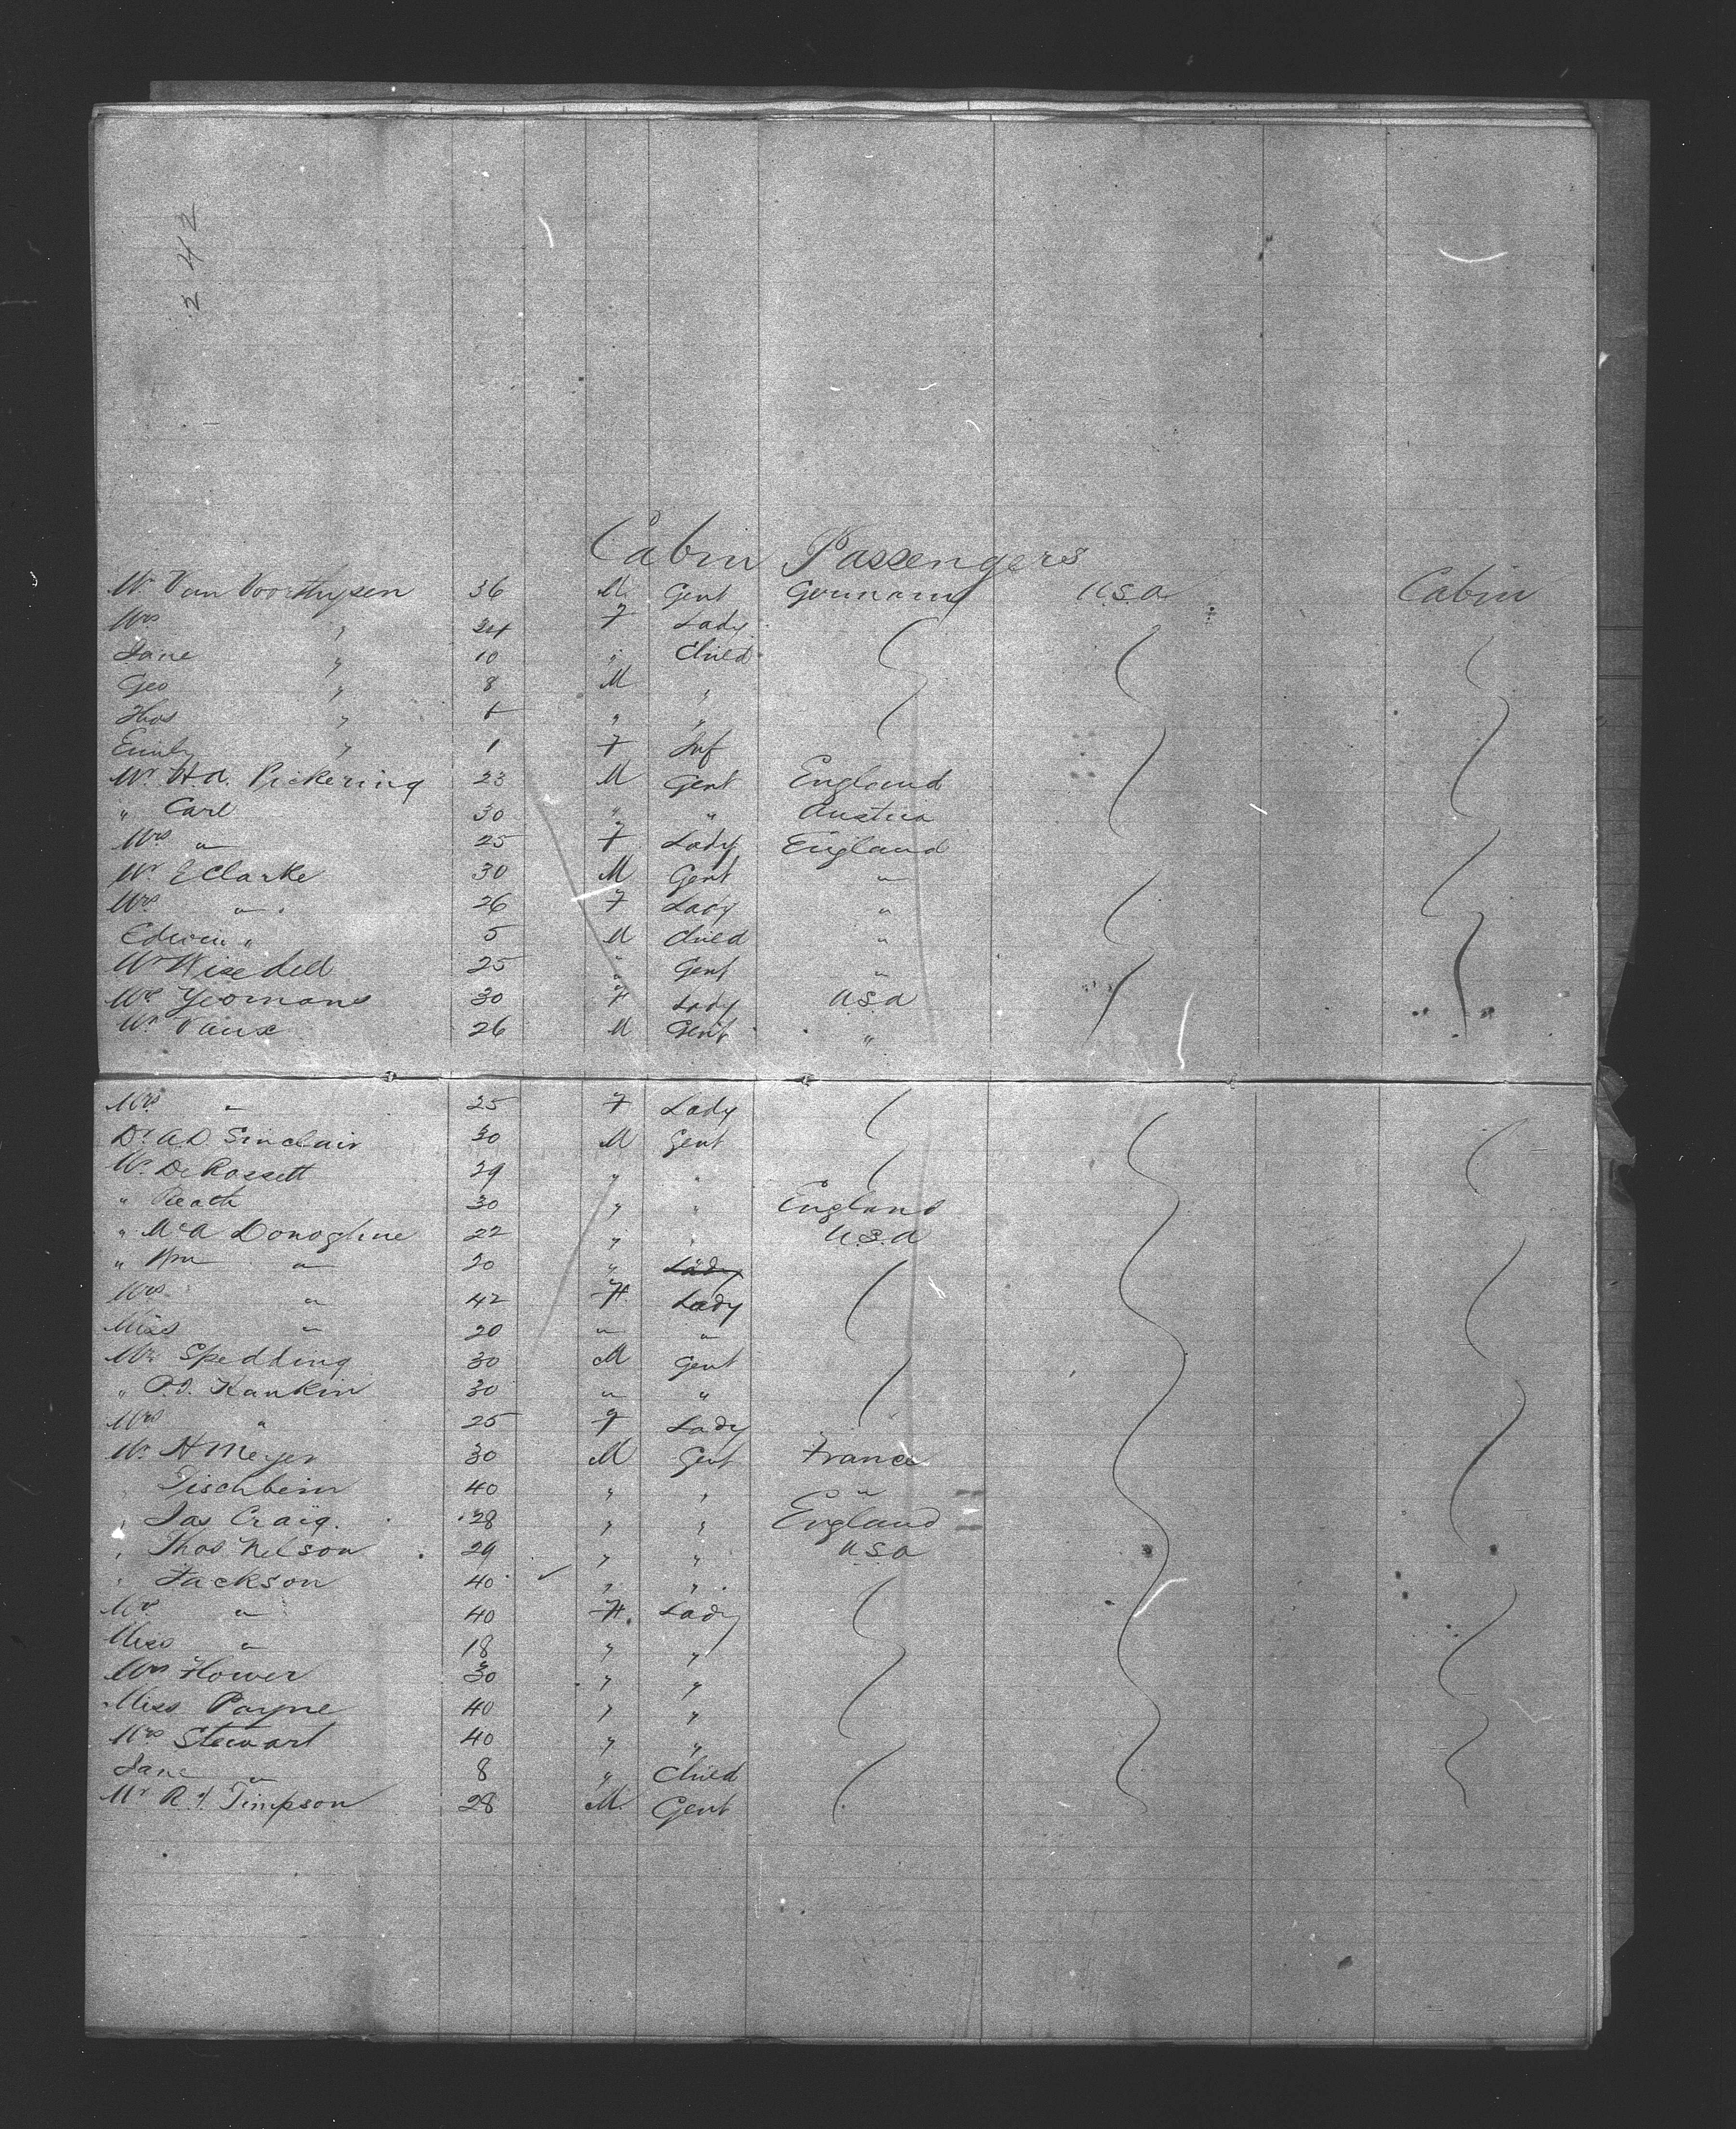 242
Cabin Passengers
Mr Van Voorthuysen 36 M. Gent Germany U.S.a Cabin
Mrs " 34 F Lady
Jane " 10 " Child
Geo " 8 M "
Thos " " "
Emily " 1 F Inf
Mr H.A. Pickering 23 M Gent England
" Carl 30 " " Austria
Mrs " 25 F Lady England
Mr E Clarke 30 M Gent "
Mrs " 26 F Lady "
Edwin " 5 M Child "
Mr Wisedell 25 " Gent "
Yeomans 30 F Lady U S a
Mr Vaux 26 M Gent "
Mrs " 25 F Lady
Dr A.D. Sinclair 30 M Gent
Mr De Rossett 29 " "
" Neach 30 " " England
" McA Donoghue 22 " " U.S.a
" Wm " 20 " Lady
Mrs " 42 F. Lady
Miss " 20 " "
Mr Spedding 30 M Gent
" Rankin 30 " "
Mrs " 25 F Lady
Mr H Meyer 30 M Gent France
" Tischbein 40 " " "
" Jas Craig. 28 " " England
" Thos Nelson 29 " " U.S.a
" Jackson 40 " "
Mrs " 40 F. Lady
Miss " 18 " "
Mrs Hower 30 " "
Miss Payne 40 " "
Mrs Stewart 40 " "
Jane " 8 " Child
Mr R.J. Timpson 28 M. Gent